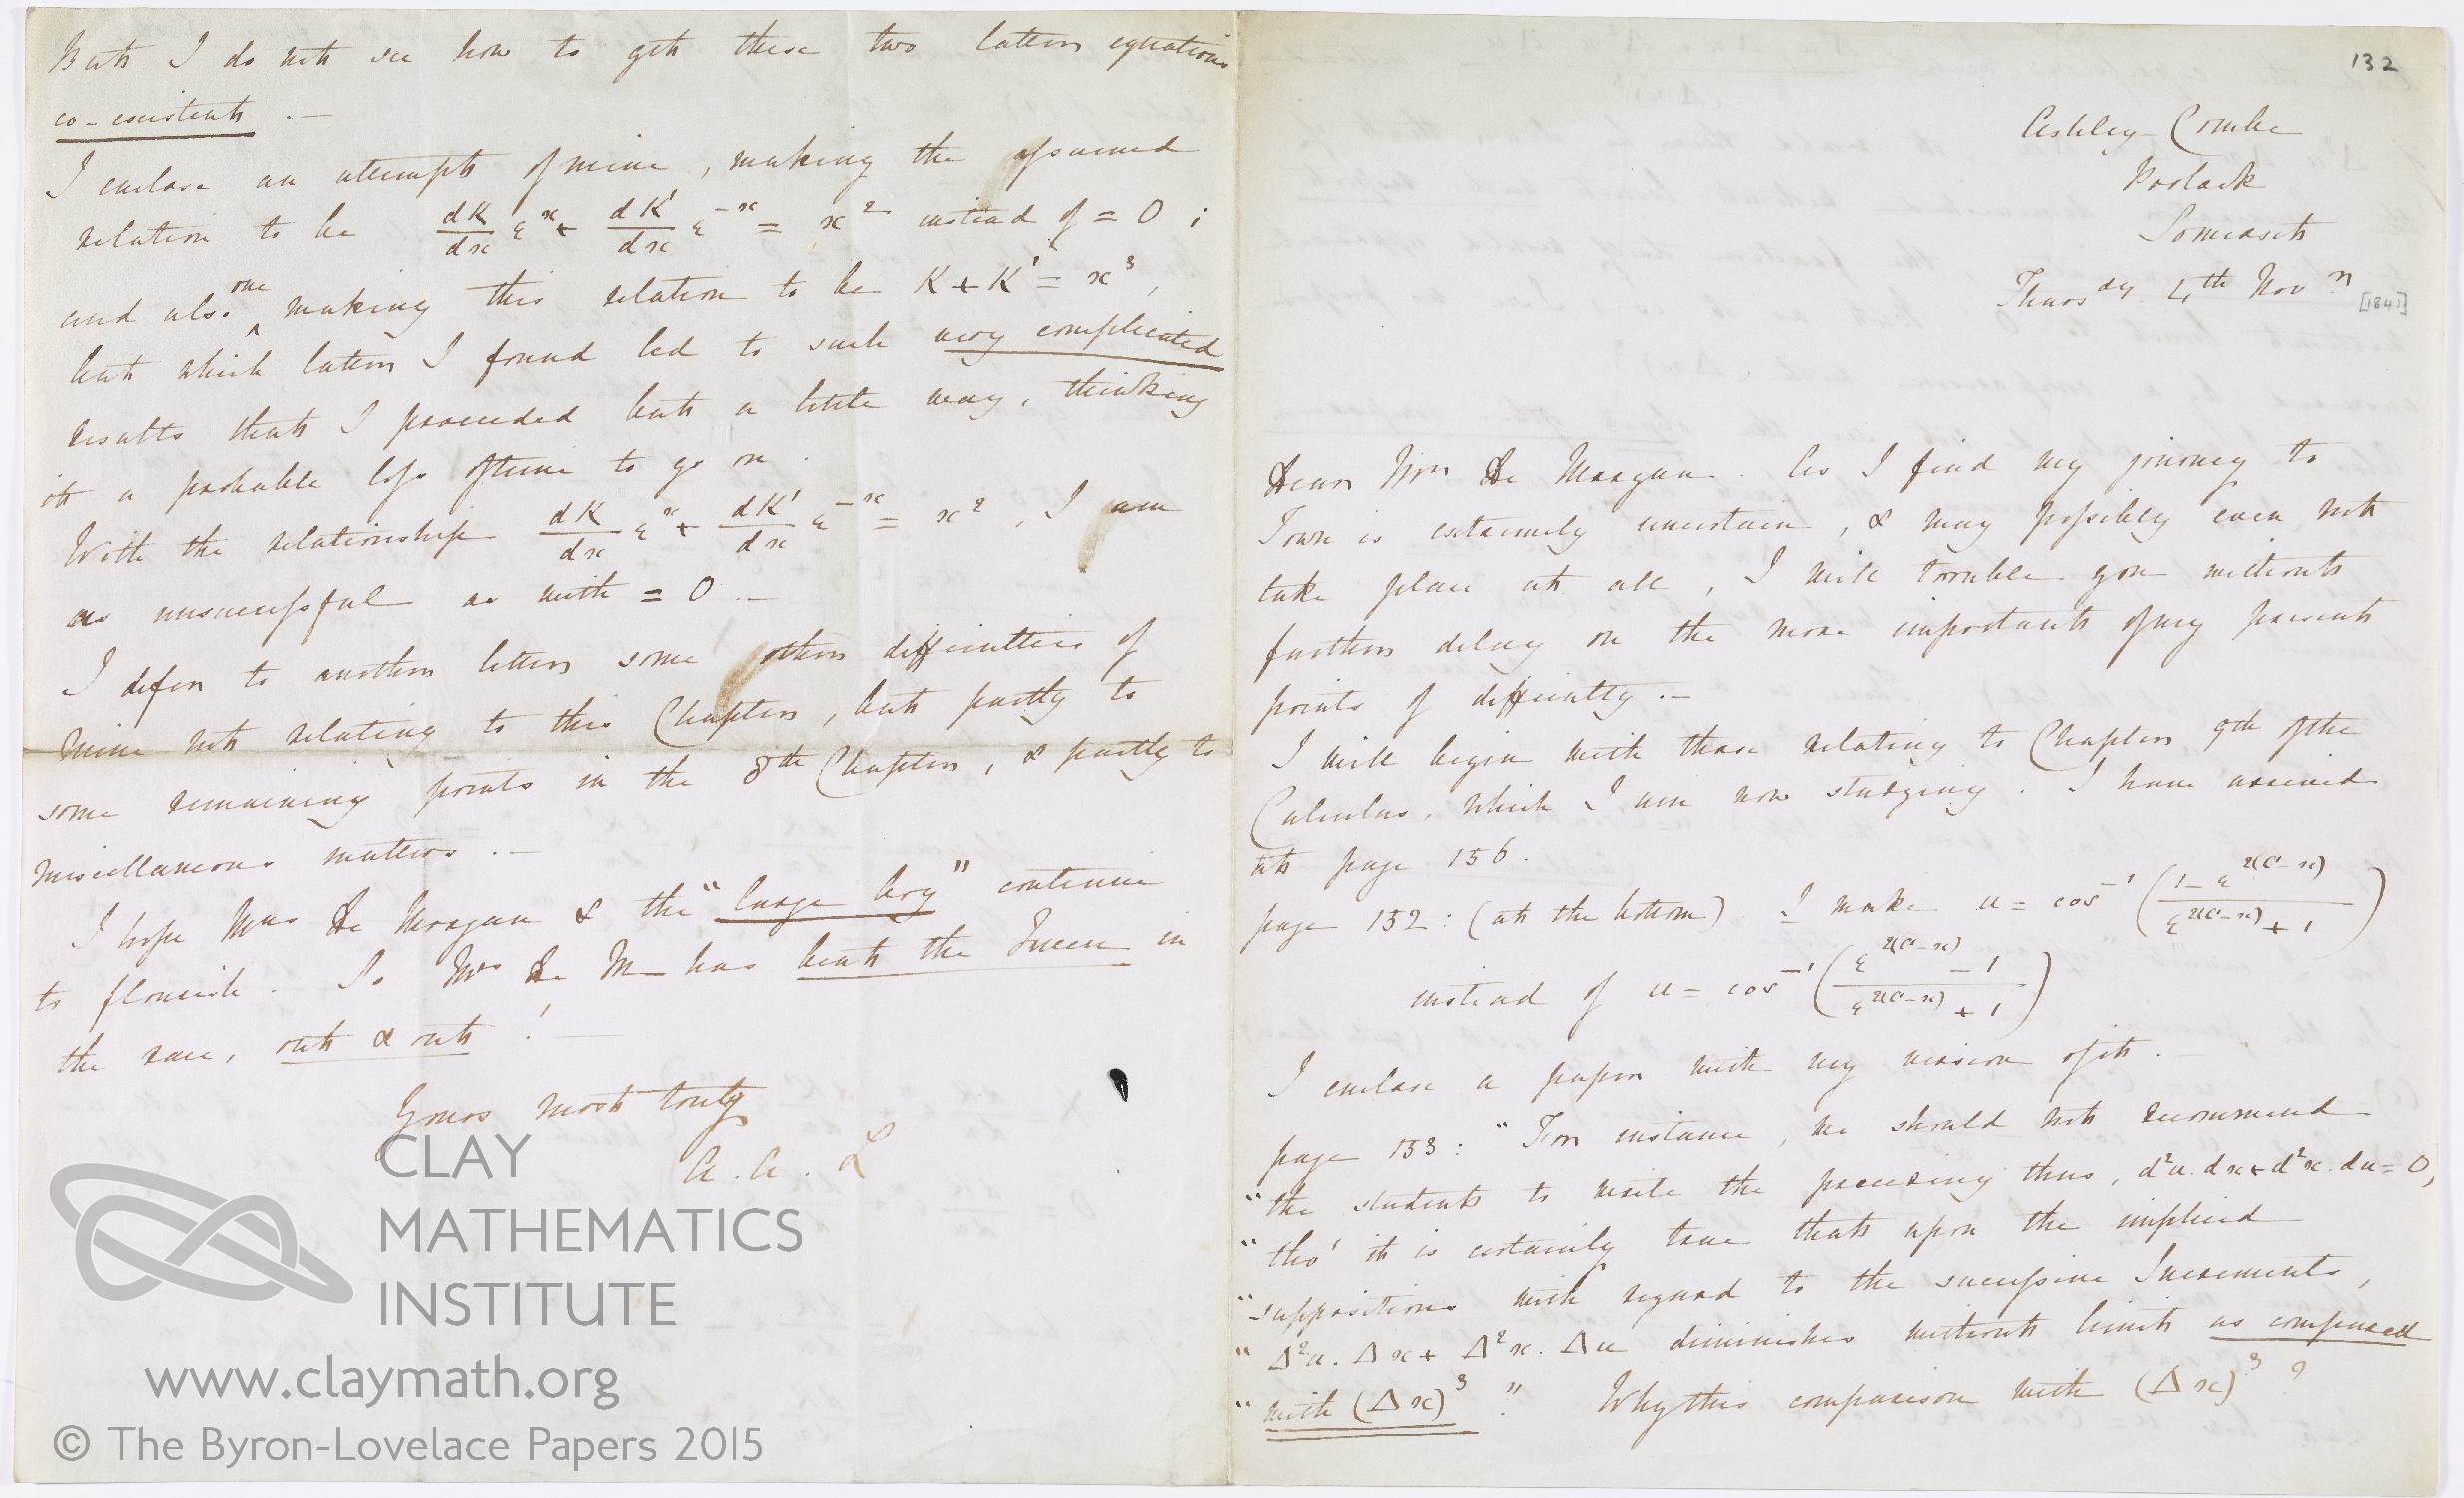 But I do not see how to get these two latter equations
co-existent . —
I enclose an attempt of mine, making the assumed
relation to be dK/dx ε^x + dK'/dx ε^−x = x² instead of = 0 ;
and also one making this relation to be K + K' = x³,
but which latter I found led to such very complicated
results that I proceeded but a little way, thinking
it a probable loss of time to go on .
With the relationship dK/dx ε^x + dK'/dx ε^−x = x², I am
as unsuccessful as with = 0 . —
I defer to another letter some other difficulties of
mine not relating to this Chapter, but partly to
some remaining points in the 8th Chapter, & partly to
miscellaneous matters . —
I hope Mrs De Morgan & the "large boy" continue
to flourish . So Mrs De M— has beat the Queen in
the race, out & out ! —
Yours most truly
A. A. L
132
Ashley-Combe
Porlock
Somerset
Thursdy 4th Novr
[1841]
Dear Mr De Morgan . As I find my journey to
Town is extremely uncertain, & may possibly even not
take place at all, I will trouble you without
further delay on the more important of my present
points of difficulty . —
I will begin with those relating to Chapter 9th of the
Calculus, which I am now studying . I have arrived
at page 156 .
page 152 : (at the bottom) I make u = cos⁻¹ ((1 − ε^2(C−x)) / (ε^2(C−x) + 1))
instead of u = cos⁻¹ ((ε^2(C−x) − 1) / (ε^2(C−x) + 1))
I enclose a paper with my version of it .
page 153 : "For instance, we should not recommend
"the student to write the preceding thus, d²u.dx + d²x.du = 0,
"tho' it is certainly true that upon the implied
"suppositions with regard to the successive Increments,
"Δ²u.Δx + Δ²x.Δu diminishes without limit as compared
"with (Δx)³ " ? Why this comparison with (Δx)³ ?
CLAY
MATHEMATICS
INSTITUTE
www.claymath.org
© The Byron-Lovelace Papers 2015